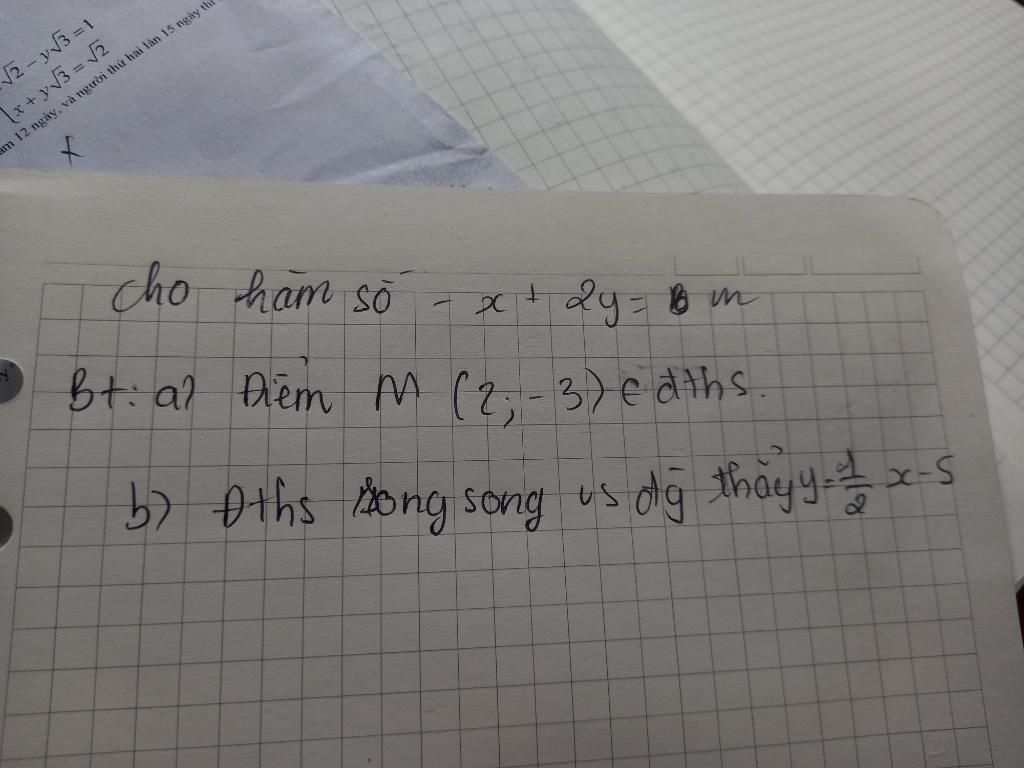 √2 - y√3 = 1
x + y√3 = √2
12 ngày, và người thứ hai làn 15 ngày th
Cho hàm số - x + 2y = m
Bt: a) Điểm M (2; -3) ∈ đths.
b) Đths song song vs đg thẳng y = 1/2 x - 5